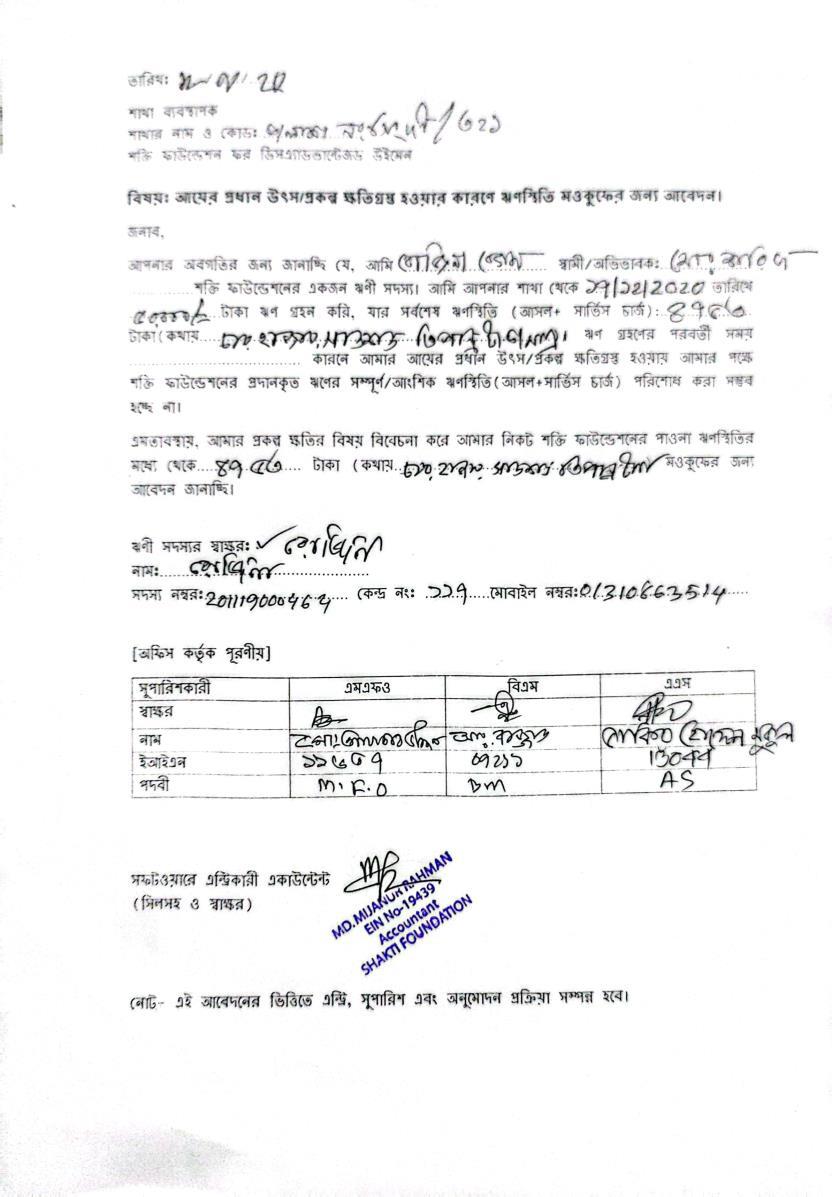 তারিখঃ
শাখা ব্যবস্থাপক
শাখার নাম ও কোডঃ পলাশ নরসিংদী / ৩২১
শক্তি ফাউন্ডেশন ফর ডিসএ্যাডভান্টেজড উইমেন
বিষয়ঃ আয়ের প্রধান উৎস/প্রকল্প ক্ষতিগ্রস্থ হওয়ার কারণে ঋণস্থিতি মওকুফের জন্য আবেদন।
জনাব,
আপনার অবগতির জন্য জানাচ্ছি যে, আমি রোজিনা বেগম স্বামী/অভিভাবক:
শক্তি ফাউন্ডেশনের একজন ঋণী সদস্য। আমি আপনার শাখা থেকে ২৭/১২/2020 তারিখে
৫০০০০/= টাকা ঋণ গ্রহন করি, যার সর্বশেষ ঋণস্থিতি (আসল+ সার্ভিস চার্জ):
টাকা(কথায় চার হাজার সাতশত তিপান্ন টাকা মাত্র। ঋণ গ্রহণের পরবর্তী সময়
কারনে আমার আয়ের প্রধান উৎস/প্রকল্প ক্ষতিগ্রস্থ হওয়ায় আমার পক্ষে
শক্তি ফাউন্ডেশনের প্রদানকৃত ঋণের সম্পূর্ণ/আংশিক ঋণস্থিতি(আসল+সার্ভিস চার্জ) পরিশোধ করা সম্ভব
হচ্ছে না।
এমতাবস্থায়, আমার প্রকল্প ক্ষতির বিষয় বিবেচনা করে আমার নিকট শক্তি ফাউন্ডেশনের পাওনা ঋণস্থিতির
মধ্যে থেকে ৪৭৫৩ টাকা (কথায় চার হাজার সাতশত তিপান্ন টাকা মওকুফের জন্য
আবেদন জানাচ্ছি।
ঋণী সদস্যর স্বাক্ষর: রোজিনা
নাম: রোজিনা
সদস্য নম্বর: কেন্দ্র নং: ১১৭ মোবাইল নম্বর: 01310863514
[অফিস কর্তৃক পূরণীয়]
সুপারিশকারী এমএফও বিএম এএস
স্বাক্ষর
নাম
ইআইএন
পদবী M.F.O BM AS
সফটওয়ারে এন্ট্রিকারী একাউন্টেন্ট
(সিলসহ ও স্বাক্ষর)
MD. MIJANUR RAHMAN
EIN No-19439
Accountant
SHAKTI FOUNDATION
নোট- এই আবেদনের ভিত্তিতে এন্ট্রি, সুপারিশ এবং অনুমোদন প্রক্রিয়া সম্পন্ন হবে।